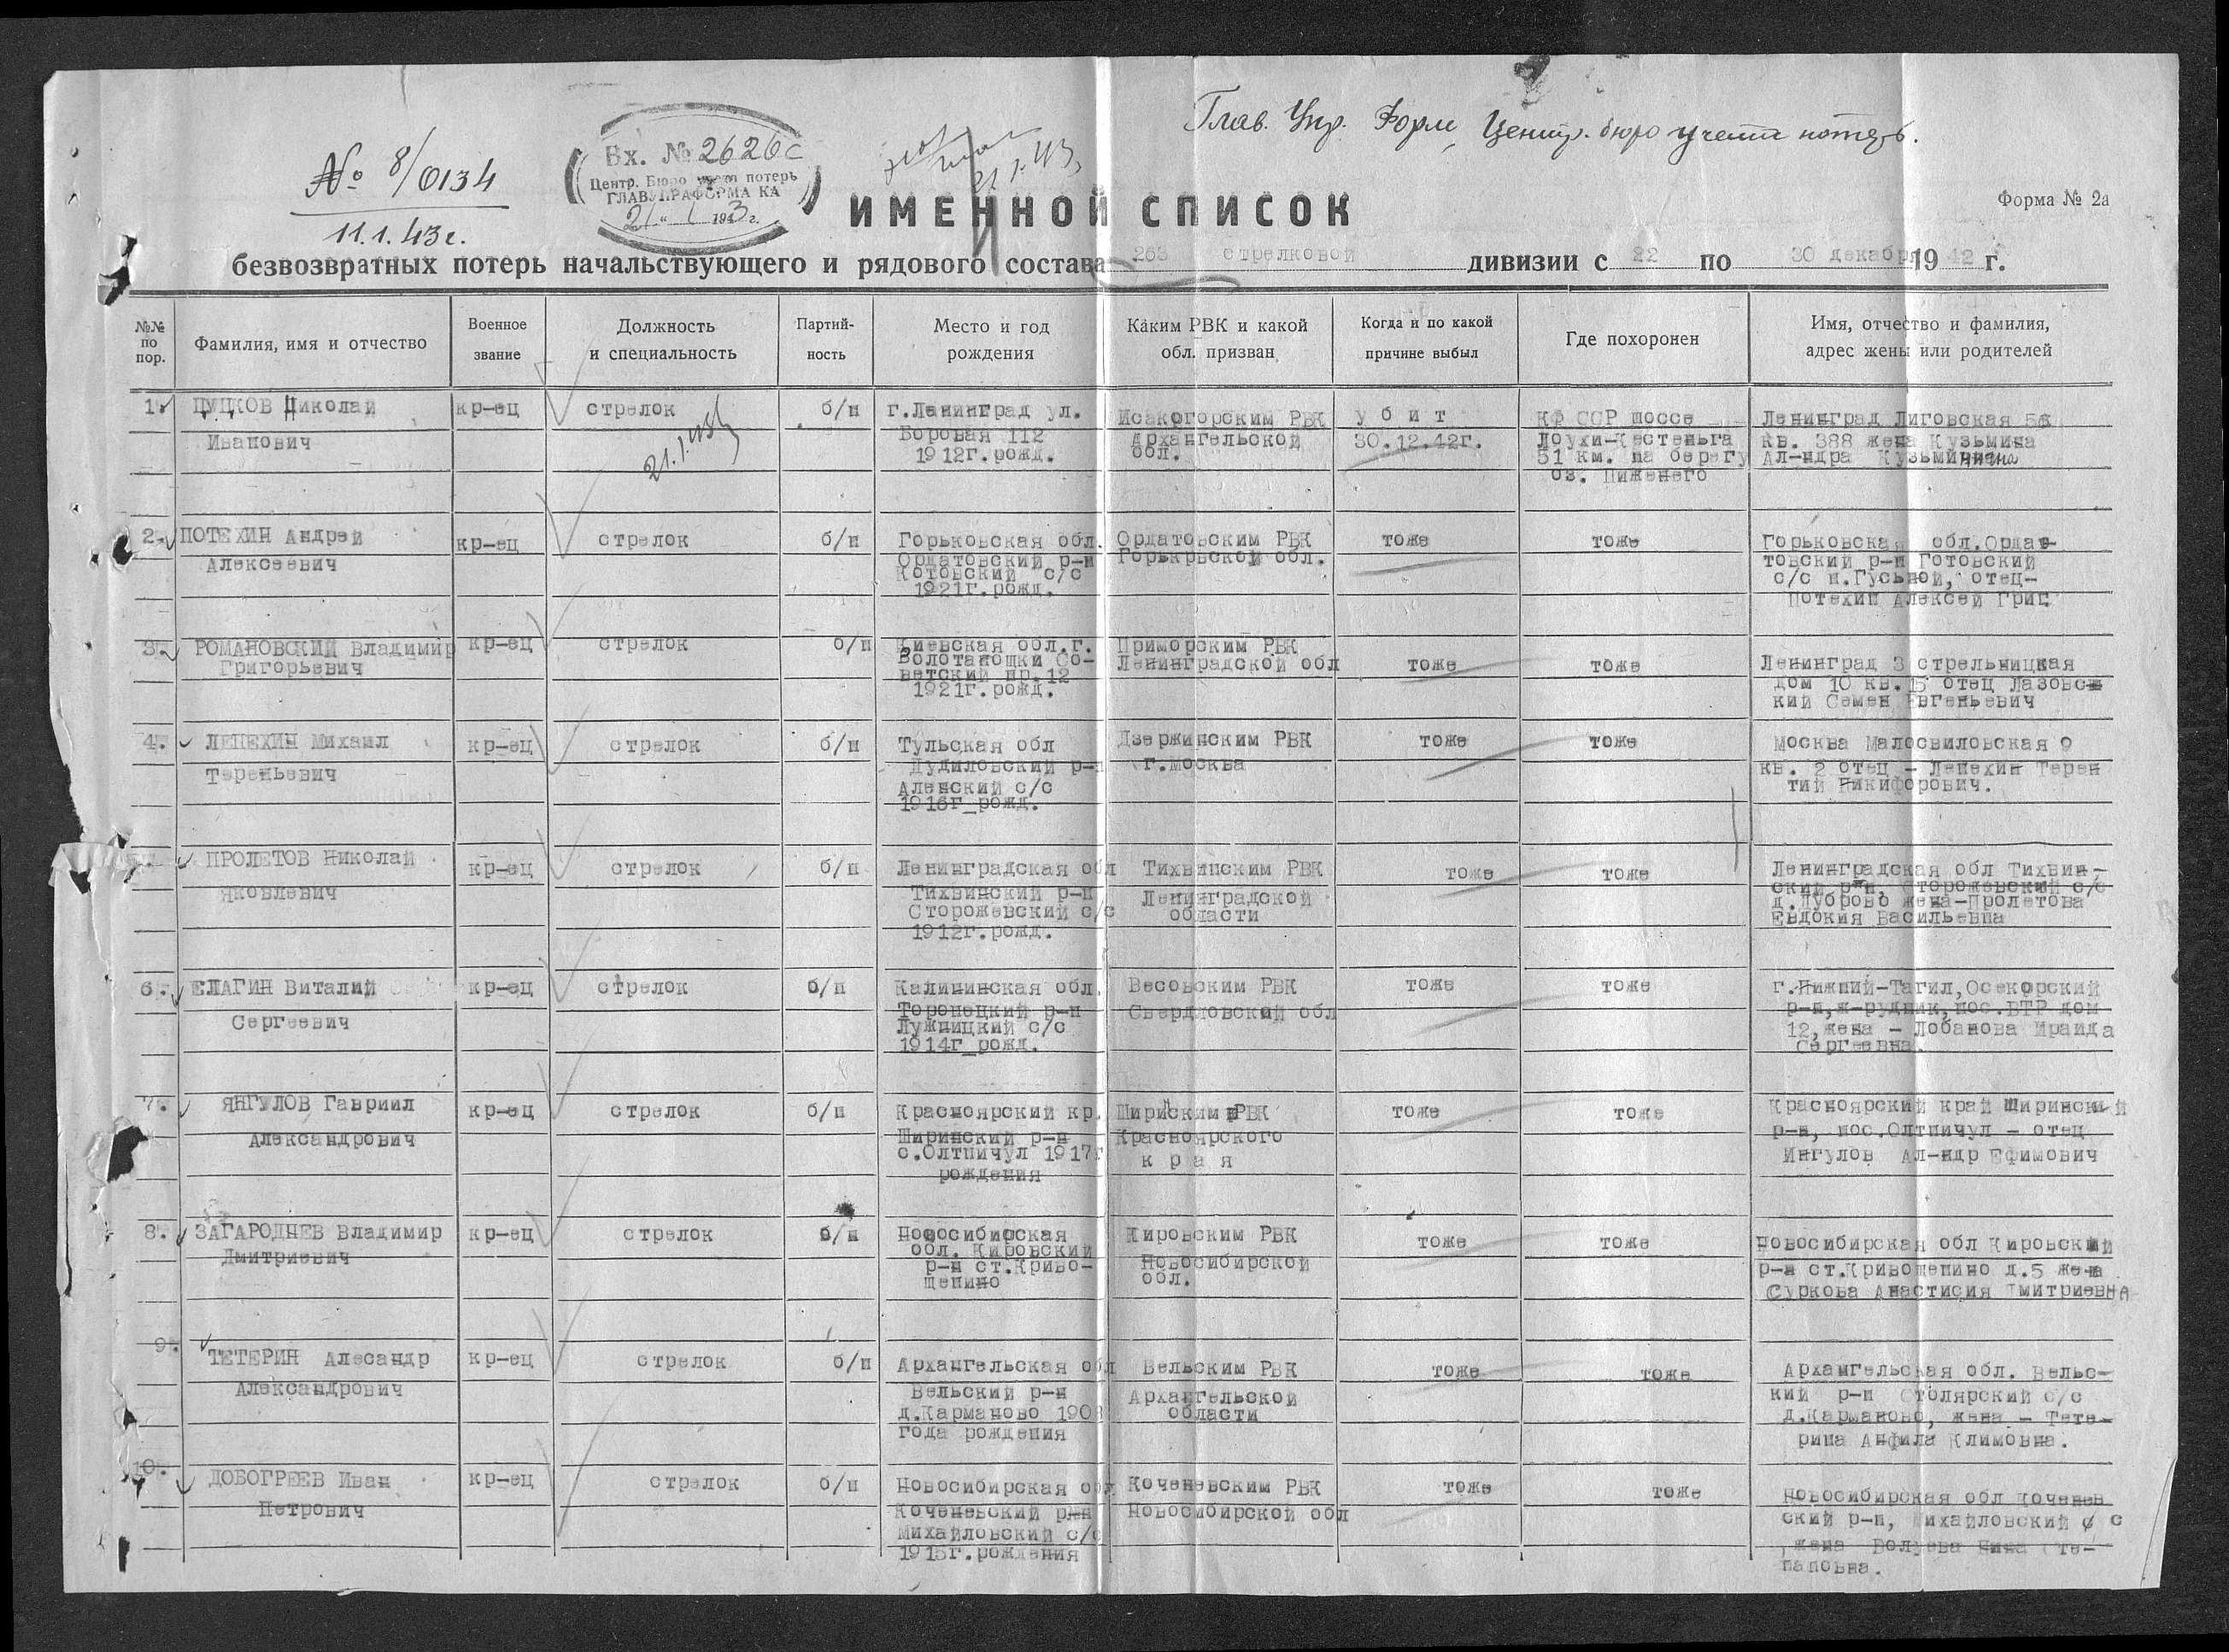 Глав. Упр. Форм, Центр. бюро учета потерь.
№ 8/0134
11.1.43г.
Вх. № 2626с
Центр. Бюро учета потерь
ГЛАВУПРАФОРМА КА
21 " 1 1943 г.
21.1.43
ИМЕННОЙ СПИСОК
Форма № 2а
безвозвратных потерь начальствующего и рядового состава 263 стрелковой дивизии с 22 по 30 декабря 1942 г.
№№ по пор.
Фамилия, имя и отчество
Военное звание
Должность и специальность
Партий-ность
Место и год рождения
Каким РВК и какой обл. призван
Когда и по какой причине выбыл
Где похоронен
Имя, отчество и фамилия, адрес жены или родителей
1. ЦУЦКОВ Николай кр-ец стрелок б/п г.Ленинград ул. Исакогорским РВК убит КФ ССР шоссе Ленинград Лиговская
Иванович Боровая 112 Архангельской 30.12.42г. Лоухи-Кестеньга кв. 388 жена Кузьмина
1912г.рожд. обл. 51 км. на берегу Ал-ндра
оз.
21.1.43
2. ПОТЕХИН Андрей кр-ец стрелок б/п Горьковская обл. Ордатовским РВК тоже тоже Горьковская обл.Ордат-
Алексеевич Ордатовский р-н Горькрвской обл. товский р-н Готовский
Котовский с/с с/с п.Гусьной, отец-
1921г.рожд. Потехин Алексей Григ.
3. РОМАНОВСКИЙ Владимир кр-ец стрелок б/п Киевская обл.г. Приморским РВК
Григорьевич Золотаношки Со- Ленинградской обл тоже тоже Ленинград 3 стрельницкая
ветский пр.12 дом 10 кв.15 отец Лазовс-
1921г.рожд. кий Семен Евгеньевич
4. ЛЕПЕХИН Михаил кр-ец стрелок б/п Тульская обл Дзержинским РВК тоже тоже Москва Малосвиловская 9
Тереньевич Дудиловский р-н г.Москва кв. 2 отец - Лепехин Терен
Аленский с/с тий Никифорович.
1916г рожд.
ПРОЛЕТОВ Николай кр-ец стрелок б/п Ленинградская обл Тихвинским РВК тоже тоже Ленинградская обл Тихвин-
Яковлевич Тихвинский р-н Ленинградской ский р-н, Сторожевский с/с
Сторожевский с/с области д.Дуброво жена-Пролетова
1912г.рожд. Евдокия Васильевна
6. ЕЛАГИН Виталий кр-ец стрелок б/п Калининская обл. Весовским РВК тоже тоже г.Нижний-Тагил,Осекорский
Сергеевич Торопецкий р-н Свердловской обл р-н,ж-рудник,пос.ВТР дом
Лужницкий с/с 12,жена - Лобанова Ираида
1914г рожд. Сергеевна.
7. ЯНГУЛОВ Гавриил кр-ец стрелок б/п Красноярский кр. Ширинским РВК тоже тоже Красноярский край Ширинский
Александрович Ширинский р-н Красноярского р-н, пос.Олтпичул - отец
с.Олтпичул 1917г края Ингулов Ал-ндр Ефимович
рождения
8. ЗАГАРОДНЕВ Владимир кр-ец стрелок б/п Новосибирская Кировским РВК тоже тоже Новосибирская обл Кировский
Дмитриевич обл. Кировский Новосибирской р-н ст.Кривощепино д.5 жена
р-н ст.Криво- обл. Суркова Анастисия Дмитриевна
щепино
9. ТЕТЕРИН Алесандр кр-ец стрелок б/п Архангельская обл Вельским РВК тоже тоже Архангельская обл. Вельс-
Александрович Вельский р-н Архангельской кий р-н Столярский с/с
д.Карманово 1908 области д.Карманово, жена - Тете-
года рождения рина Анфила Климовна.
10. ДОБОГРЕЕВ Иван кр-ец стрелок б/п Новосибирская обл Коченевским РВК тоже тоже Новосибирская обл Коченев
Петрович Коченевский р-н Новосибирской обл ский р-н, Михайловский с/с
Михайловский с/с жена Волуева Нина Сте-
1915г.рождения пановна.